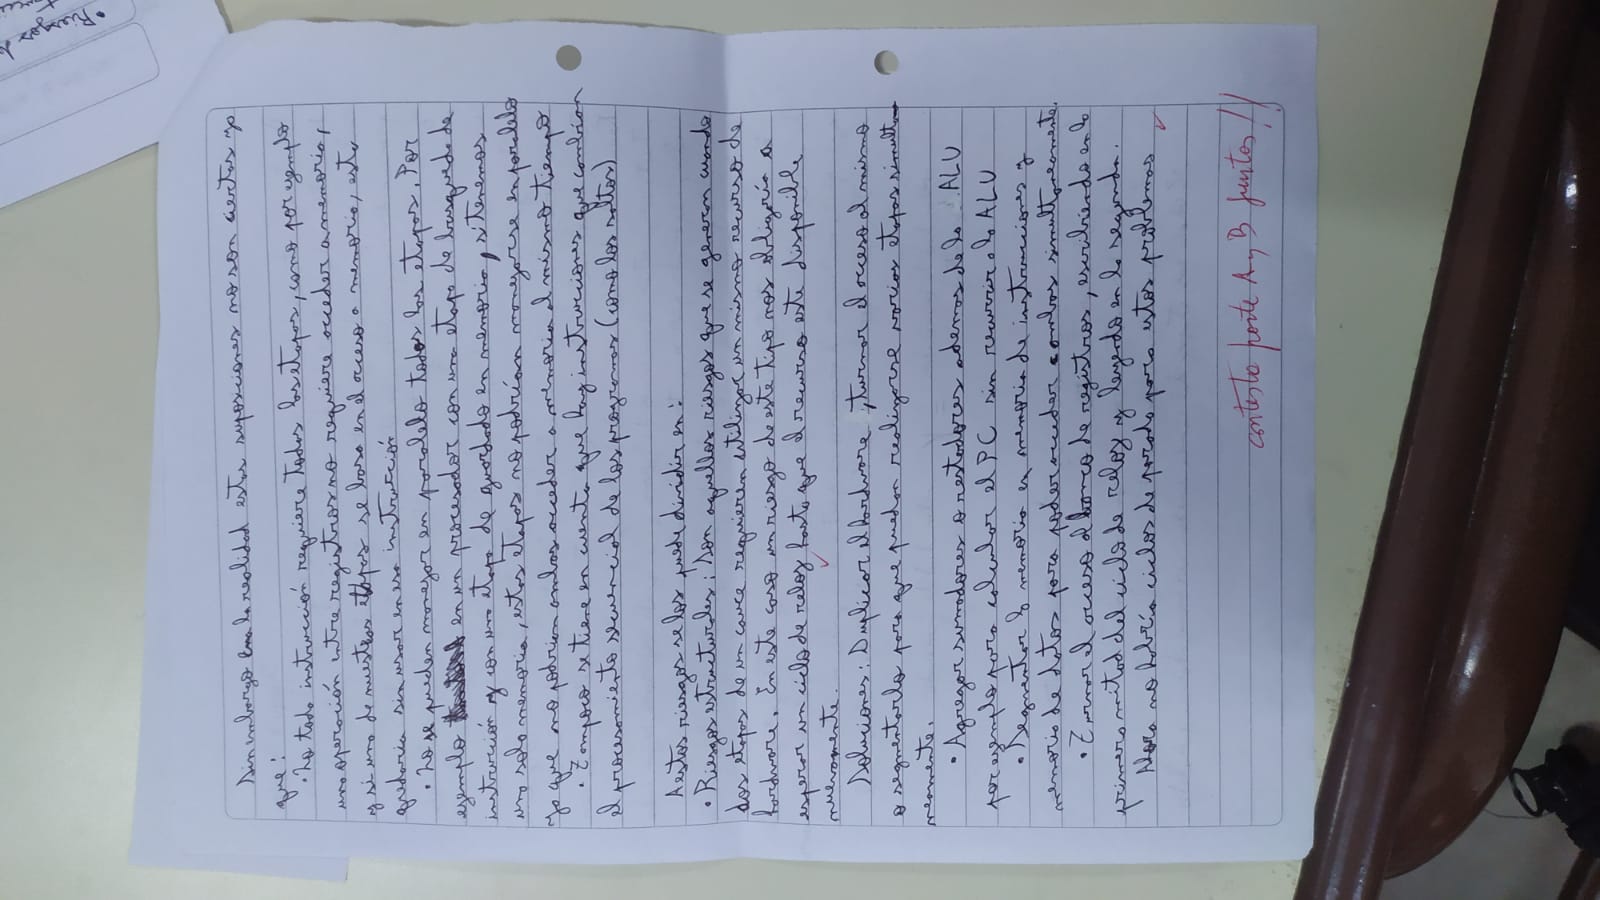 Sin embargo en la realidad estas suposiciones no son ciertas ya
que:
• No toda instrucción requiere todas las etapas, como por ejemplo
una operación entre registros no requiere acceder a memoria,
y si una de nuestras etapas se basa en el acceso a memoria, esta
quedaria sin usar en esa instrucción
• No se pueden manejar en paralelo todas las etapas. Por
ejemplo en un procesador con una etapa de busqueda de
instrucción y con una etapa de guardado en memoria, si tenemos
una sola memoria, estas etapas no podrían manejarse en paralelo
ya que no podrian ambas acceder a memoria al mismo tiempo
• Tampoco se tiene en cuenta que hay instrucciones que cambian
el procesamiento secuencial de los programas (como los saltos)
A estos riesgos se los puede dividir en:
• Riesgos estructurales: Son aquellos riesgos que se generan cuando
dos etapas de un cauce requieren utilizar un mismo recurso de
hardware. En este caso un riesgo de este tipo nos obligaría a
esperar un ciclo de reloj hasta que el recurso este disponible
nuevamente.
Soluciones: Duplicar el hardware, turnar el acceso al mismo
o segmentarlo para que puedan realizarse varias etapas simulta
neamente.
• Agregar sumadores o restadores ademas de la ALU
por ejemplo para calcular el PC sin recurrir a la ALU
• Segmentar la memoria en memoria de instrucciones y
memoria de datos para poder acceder a ambas simultaneamente.
• Turnar el acceso al banco de registros, escribiendo en la
primera mitad del ciclo de reloj y leyendo en la segunda.
Ahora no habría ciclos de parada para estos problemas
contesta parte A y B juntas!!
• Riesgos de